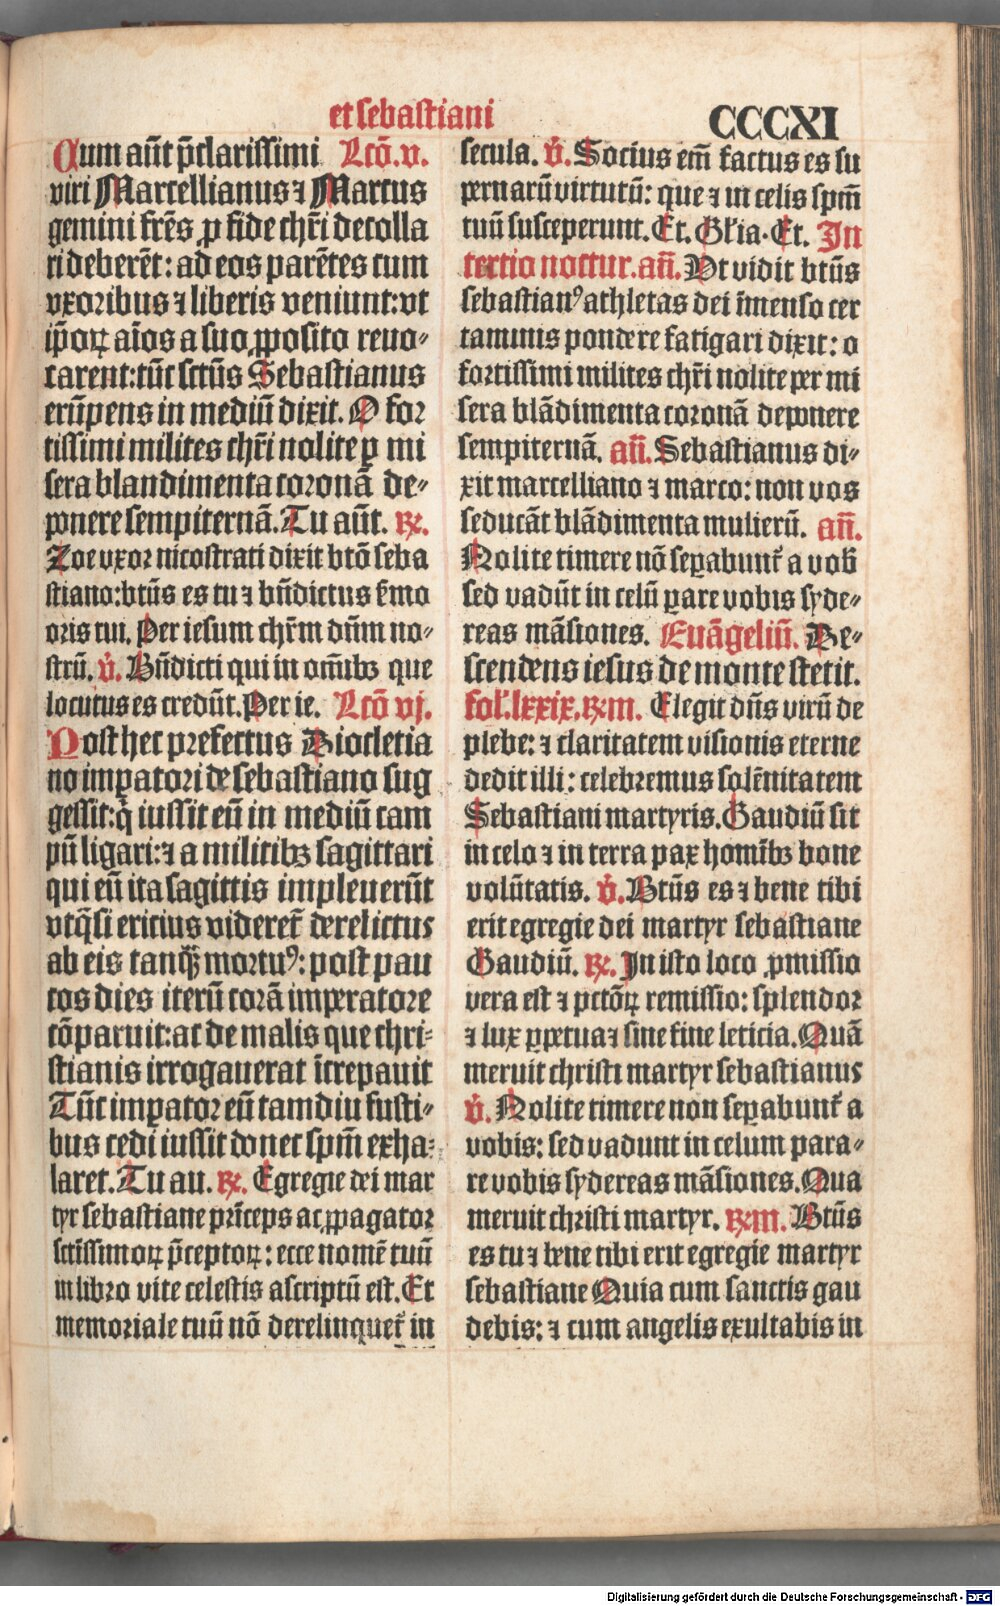 et sebastiani
CCCXI
Cum aūt p̄clarissimi Lcō. v.
viri Marcellianus ⁊ Marcus
gemini frēs ꝓ fide chr̄i decolla
ri deberēt: ad eos parētes cum
vxoribus ⁊ liberis veniunt: vt
ip̄oꝝ aīos a suo ꝓposito reuo⸗
carent: tūc sctūs Sebastianus
erūpens in mediū dixit. O for
tissimi milites chr̄i nolite ꝑ mi
sera blandimenta coronā de⸗
ponere sempiternā. Tu aūt. ℞.
Zoe vxor nicostrati dixit btō seba
stiano: btūs es tu ⁊ bn̄dictus s̄mo
oris tui. Per iesum chr̄m dn̄m no⸗
strū. v̄. Bn̄dicti qui in om̄ibꝫ que
locutus es credūt. Per ie. Lcō vj.
Post hec prefectus Diocletia
no imꝑatori de sebastiano sug
gessit: q̇ iussit eū in mediū cam
pū ligari: ⁊ a militibꝫ sagittari
qui eū ita sagittis impleuerūt
vt q̄si ericius videret᷑ derelictus
ab eis tanq̄ꝫ mortuꝰ: post pau
cos dies iterū corā imperatore
cōparuit: ac de malis que chri⸗
stianis irrogauerat īcrepauit
Tūc imꝑator eū tamdiu fusti⸗
bus cedi iussit donec spm̄ exha⸗
laret. Tu au. ℞. Egregie dei mar
tyr sebastiane prīceps ac ꝓpagator
sctīssimoꝝ p̄ceptoꝝ: ecce nomē tuū
in libro vite celestis ascriptū est. Et
memoriale tuū nō derelinquet᷑ in
secula. v̄. Socius em̄ factus es su
pernarū virtutū: que ⁊ in celis spm̄
tuū susceperunt. Et. Gl'ia. Et. In
tertio noctur. an̄. Vt vidit btūs
sebastianꝰ athletas dei īmenso cer
taminis pondere fatigari dixit: o
fortissimi milites chr̄i nolite per mi
sera blādimenta coronā deponere
sempiternā. an̄. Sebastianus di⸗
xit marcelliano ⁊ marco: non vos
seducāt blādimenta mulierū. an̄.
Nolite timere nō seꝑabunt᷑ a vob̄
sed vadūt in celū ꝑare vobis syde⸗
reas māsiones. Euāgeliū. De⸗
scendens iesus de monte stetit.
fol'. lxxix. ℞m. Elegit dn̄s virū de
plebe: ⁊ claritatem visionis eterne
dedit illi: celebremus solēnitatem
Sebastiani martyris. Gaudiū sit
in celo ⁊ in terra pax homībꝫ bone
volūtatis. v̄. Btūs es ⁊ bene tibi
erit egregie dei martyr sebastiane
Gaudiū. ℞. In isto loco ꝓmissio
vera est ⁊ pctōꝝ remissio: splendor
⁊ lux ꝑpetua ⁊ sine fine leticia. Quā
meruit christi martyr sebastianus
v̄. Nolite timere non seꝑabunt᷑ a
vobis: sed vadunt in celum para⸗
re vobis sydereas māsiones. Qua
meruit christi martyr. ℞m. Btūs
es tu ⁊ bene tibi erit egregie martyr
sebastiane Quia cum sanctis gau
debis: ⁊ cum angelis exultabis in
Digitalisierung gefördert durch die Deutsche Forschungsgemeinschaft - DFG